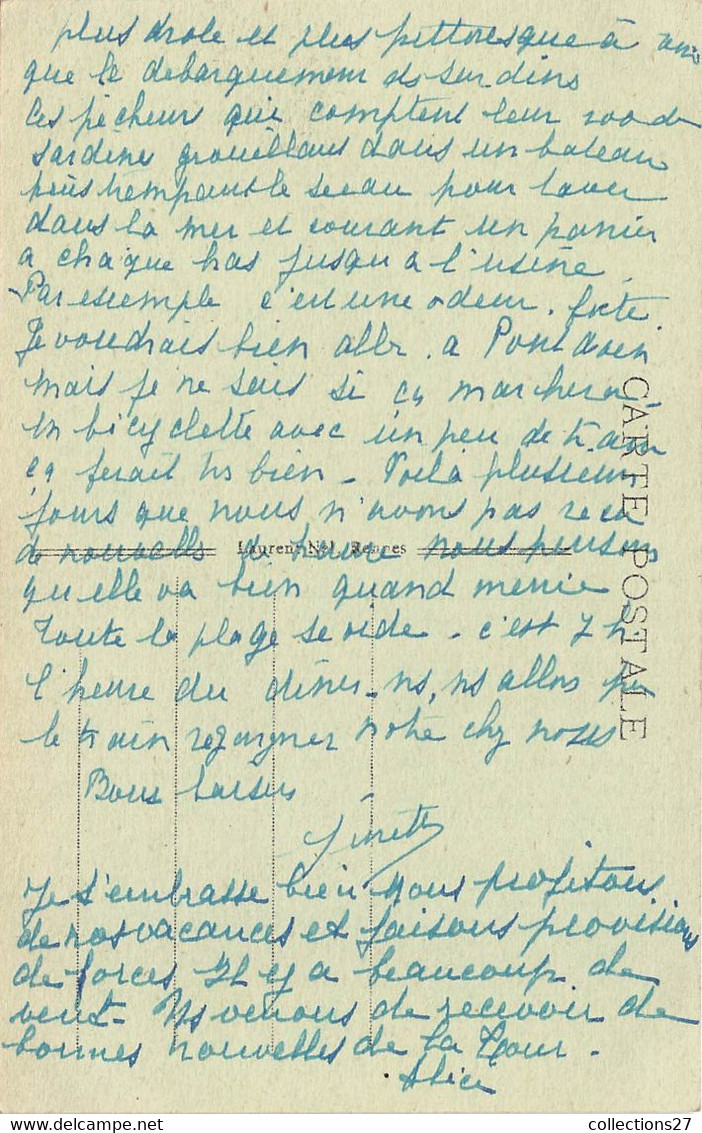 plus drole et plus pittoresque à voir
que le debarquement de sardines
les pêcheurs qui comptent leur 200 de
sardines grouillans dans un bateau
puis trempant le seau pour laver
dans la mer et courant un panier
a chaque bras jusqu a l'usine
Par exemple c'est une odeur forte.
Je voudrais bien aller a Pont Aven
mais je ne sais si ça marchera
en bicyclette avec un peu de train
ça ferait tres bien - Voilà plusieurs
jours que nous n'avons pas reçu
de nouvelles de nous pensons
Laurent-Nel, Rennes
qu elle va bien quand meme
Toute la plage se vide - c'est 7 h
l'heure du diner - ns, ns allons par
le train regagner notre chez nous
Bons baisers
Ginette
Je t'embrasse bien nous profitons
de nos vacances et faisons provisions
de forces Il y a beaucoup de
vent - Ns venons de recevoir de
bonnes nouvelles de la Tour.
Alice
CARTE POSTALE
collections27